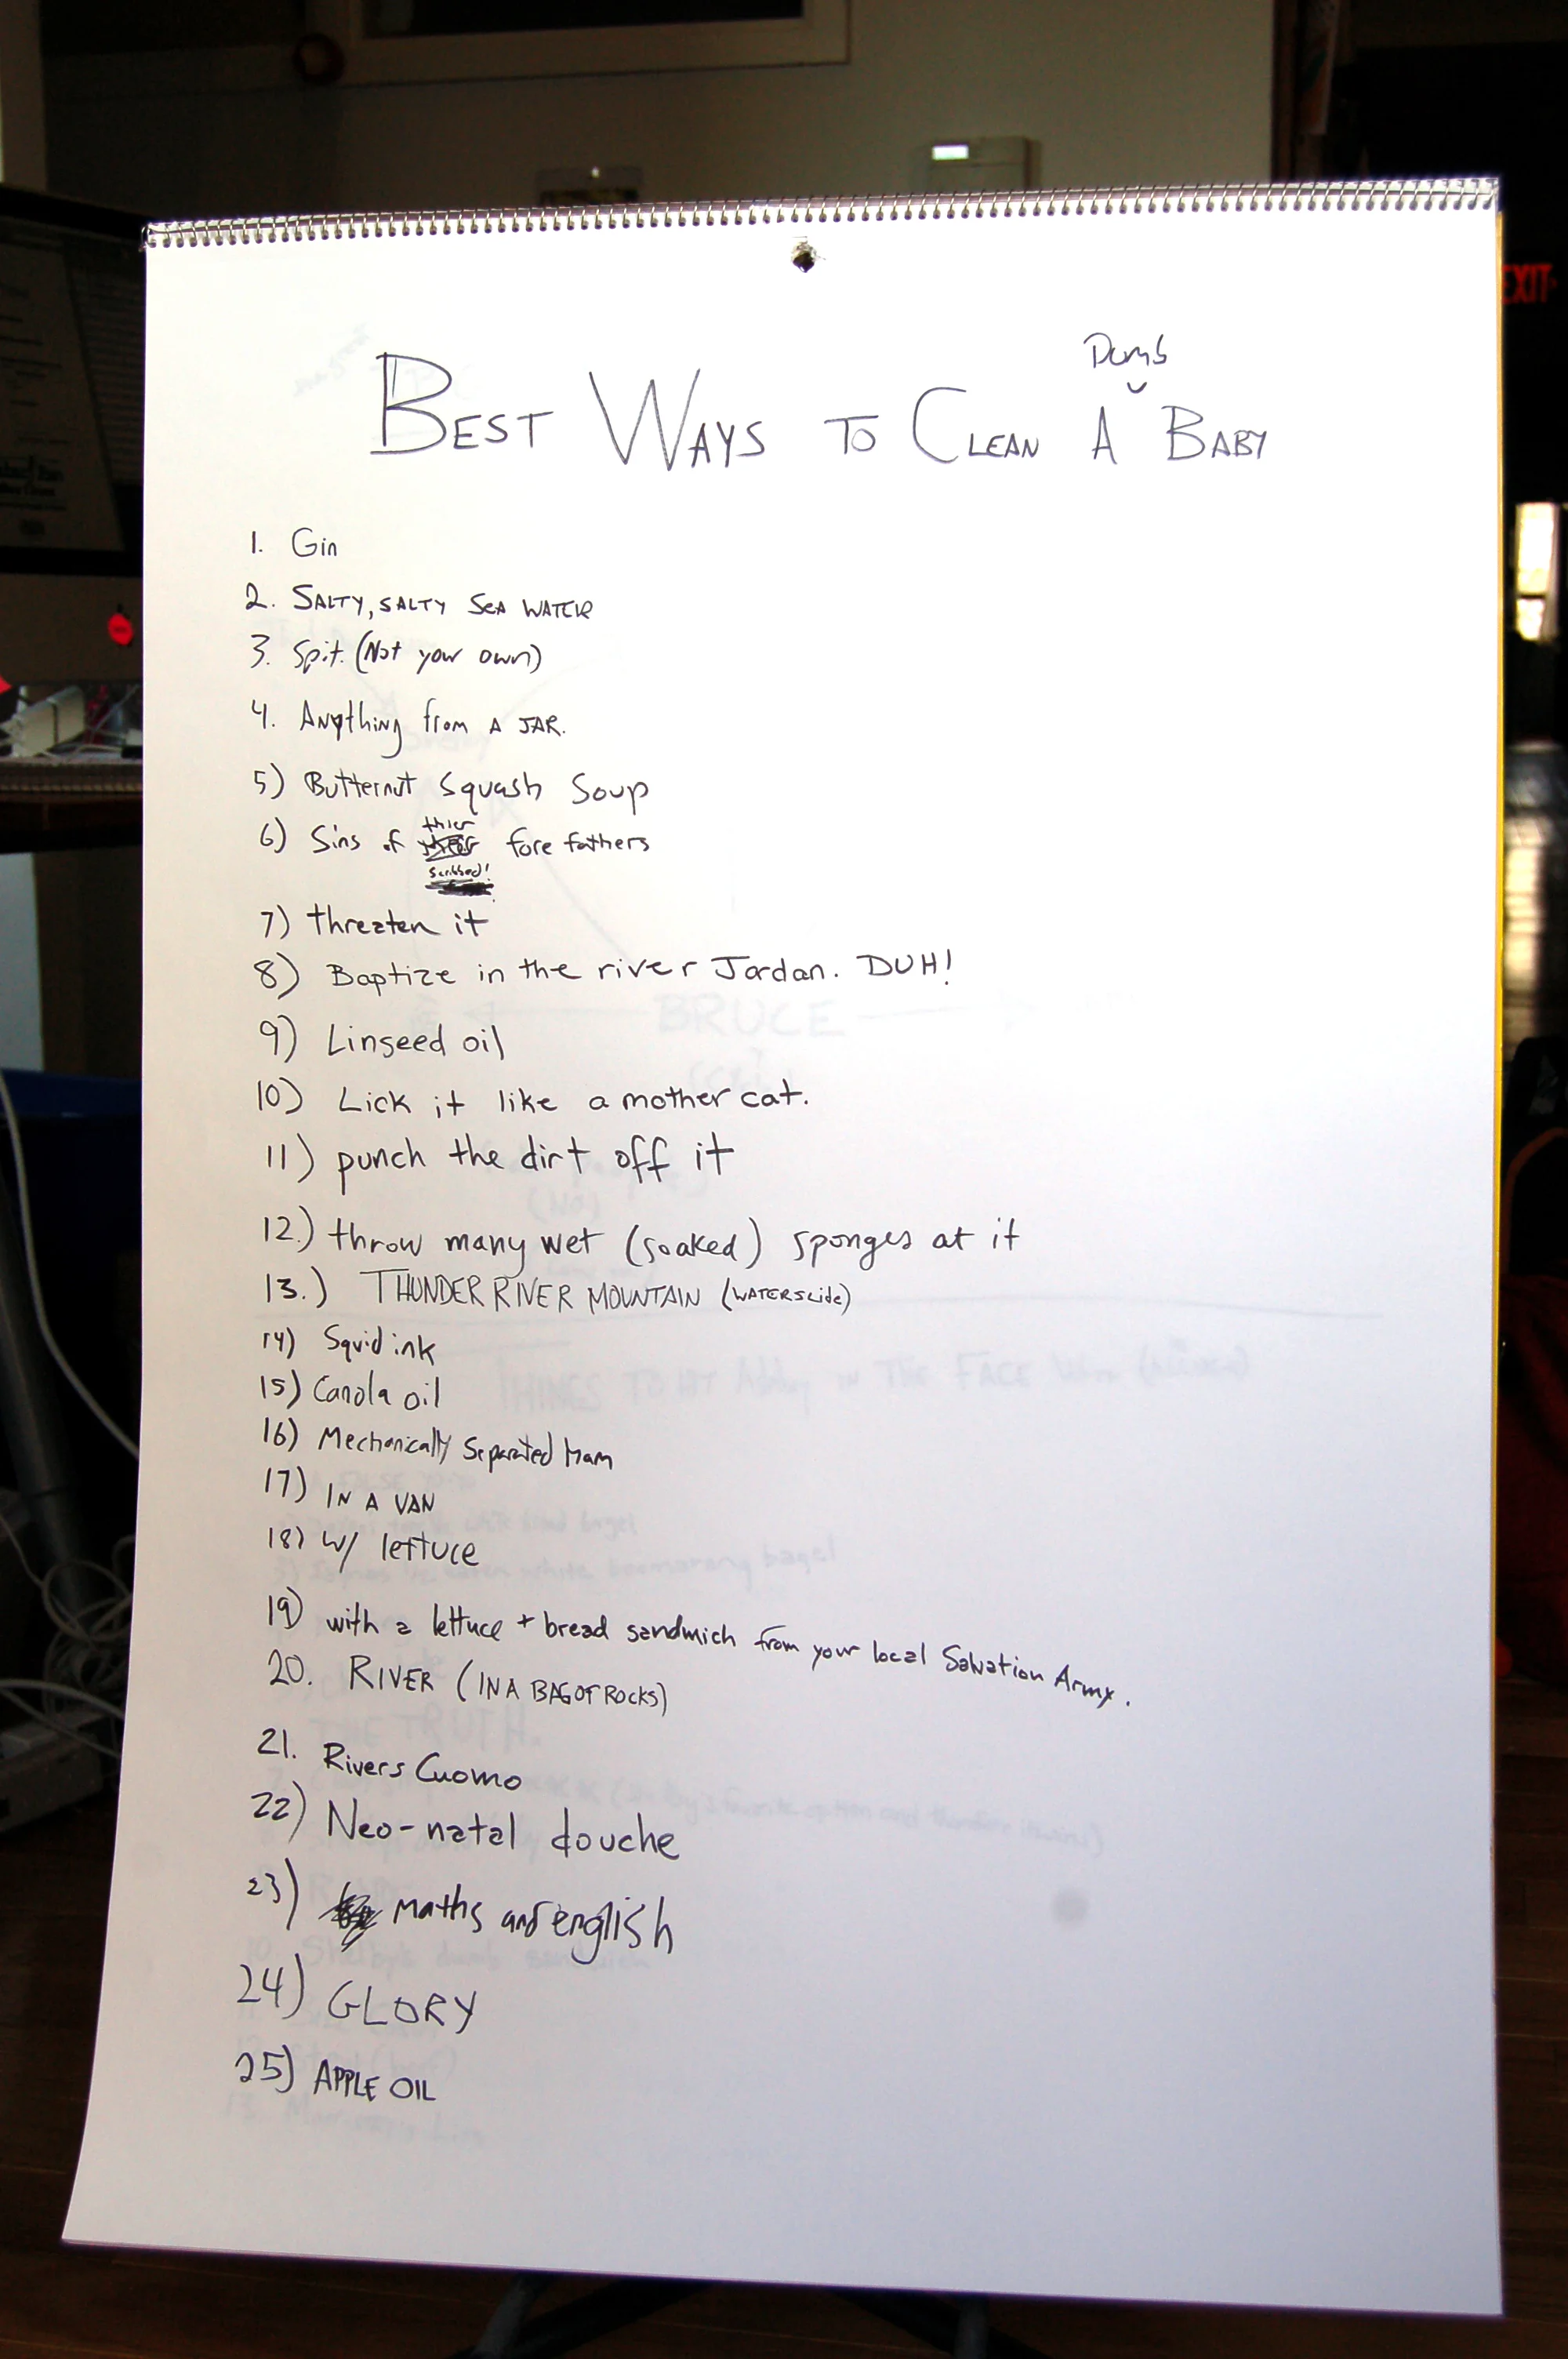 EXIT
Dumb
BEST WAYS TO CLEAN A BABY
1. Gin
2. SALTY, SALTY SEA WATER
3. Spit. (Not your own)
4. Anything from A JAR.
5) Butternut Squash Soup
thier
6) Sins of fore fathers
scribbed!
7) threaten it
8) Baptize in the river Jordan. DUH!
9) Linseed oil
10) Lick it like a mother cat.
11) punch the dirt off it
12.) throw many wet (soaked) sponges at it
13.) THUNDER RIVER MOUNTAIN (WATERSLide)
14) Squid ink
15) Canola oil
16) Mechanically Separated Ham
17) IN A VAN
18) w/ lettuce
19) with a lettuce + bread sandwich from your local Salvation Army.
20. RIVER (IN A BAG OF ROCKS)
21. Rivers Cuomo
22) Neo-natal douche
23) maths and english
24) GLORY
25) APPLE OIL
BRUCE
(NO)
THINGS TO HIT IN THE FACE
THE TRUTH.